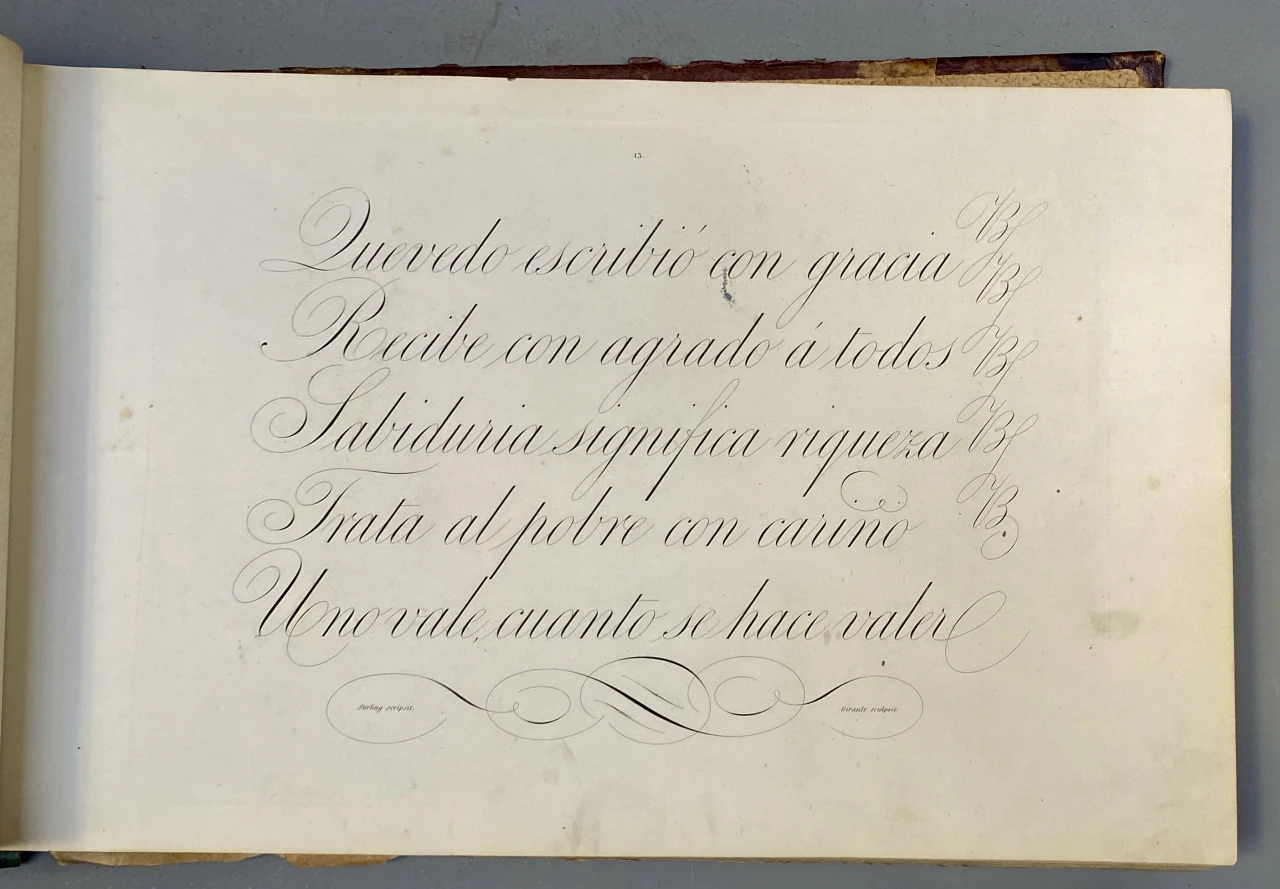 13.
Quevedo escribió con gracia B
Recibe con agrado á todos B
Sabiduria significa riqueza B
Trata al pobre con cariño B
Uno vale, cuanto se hace valer
Stirling scripsit.
Girault sculpsit.